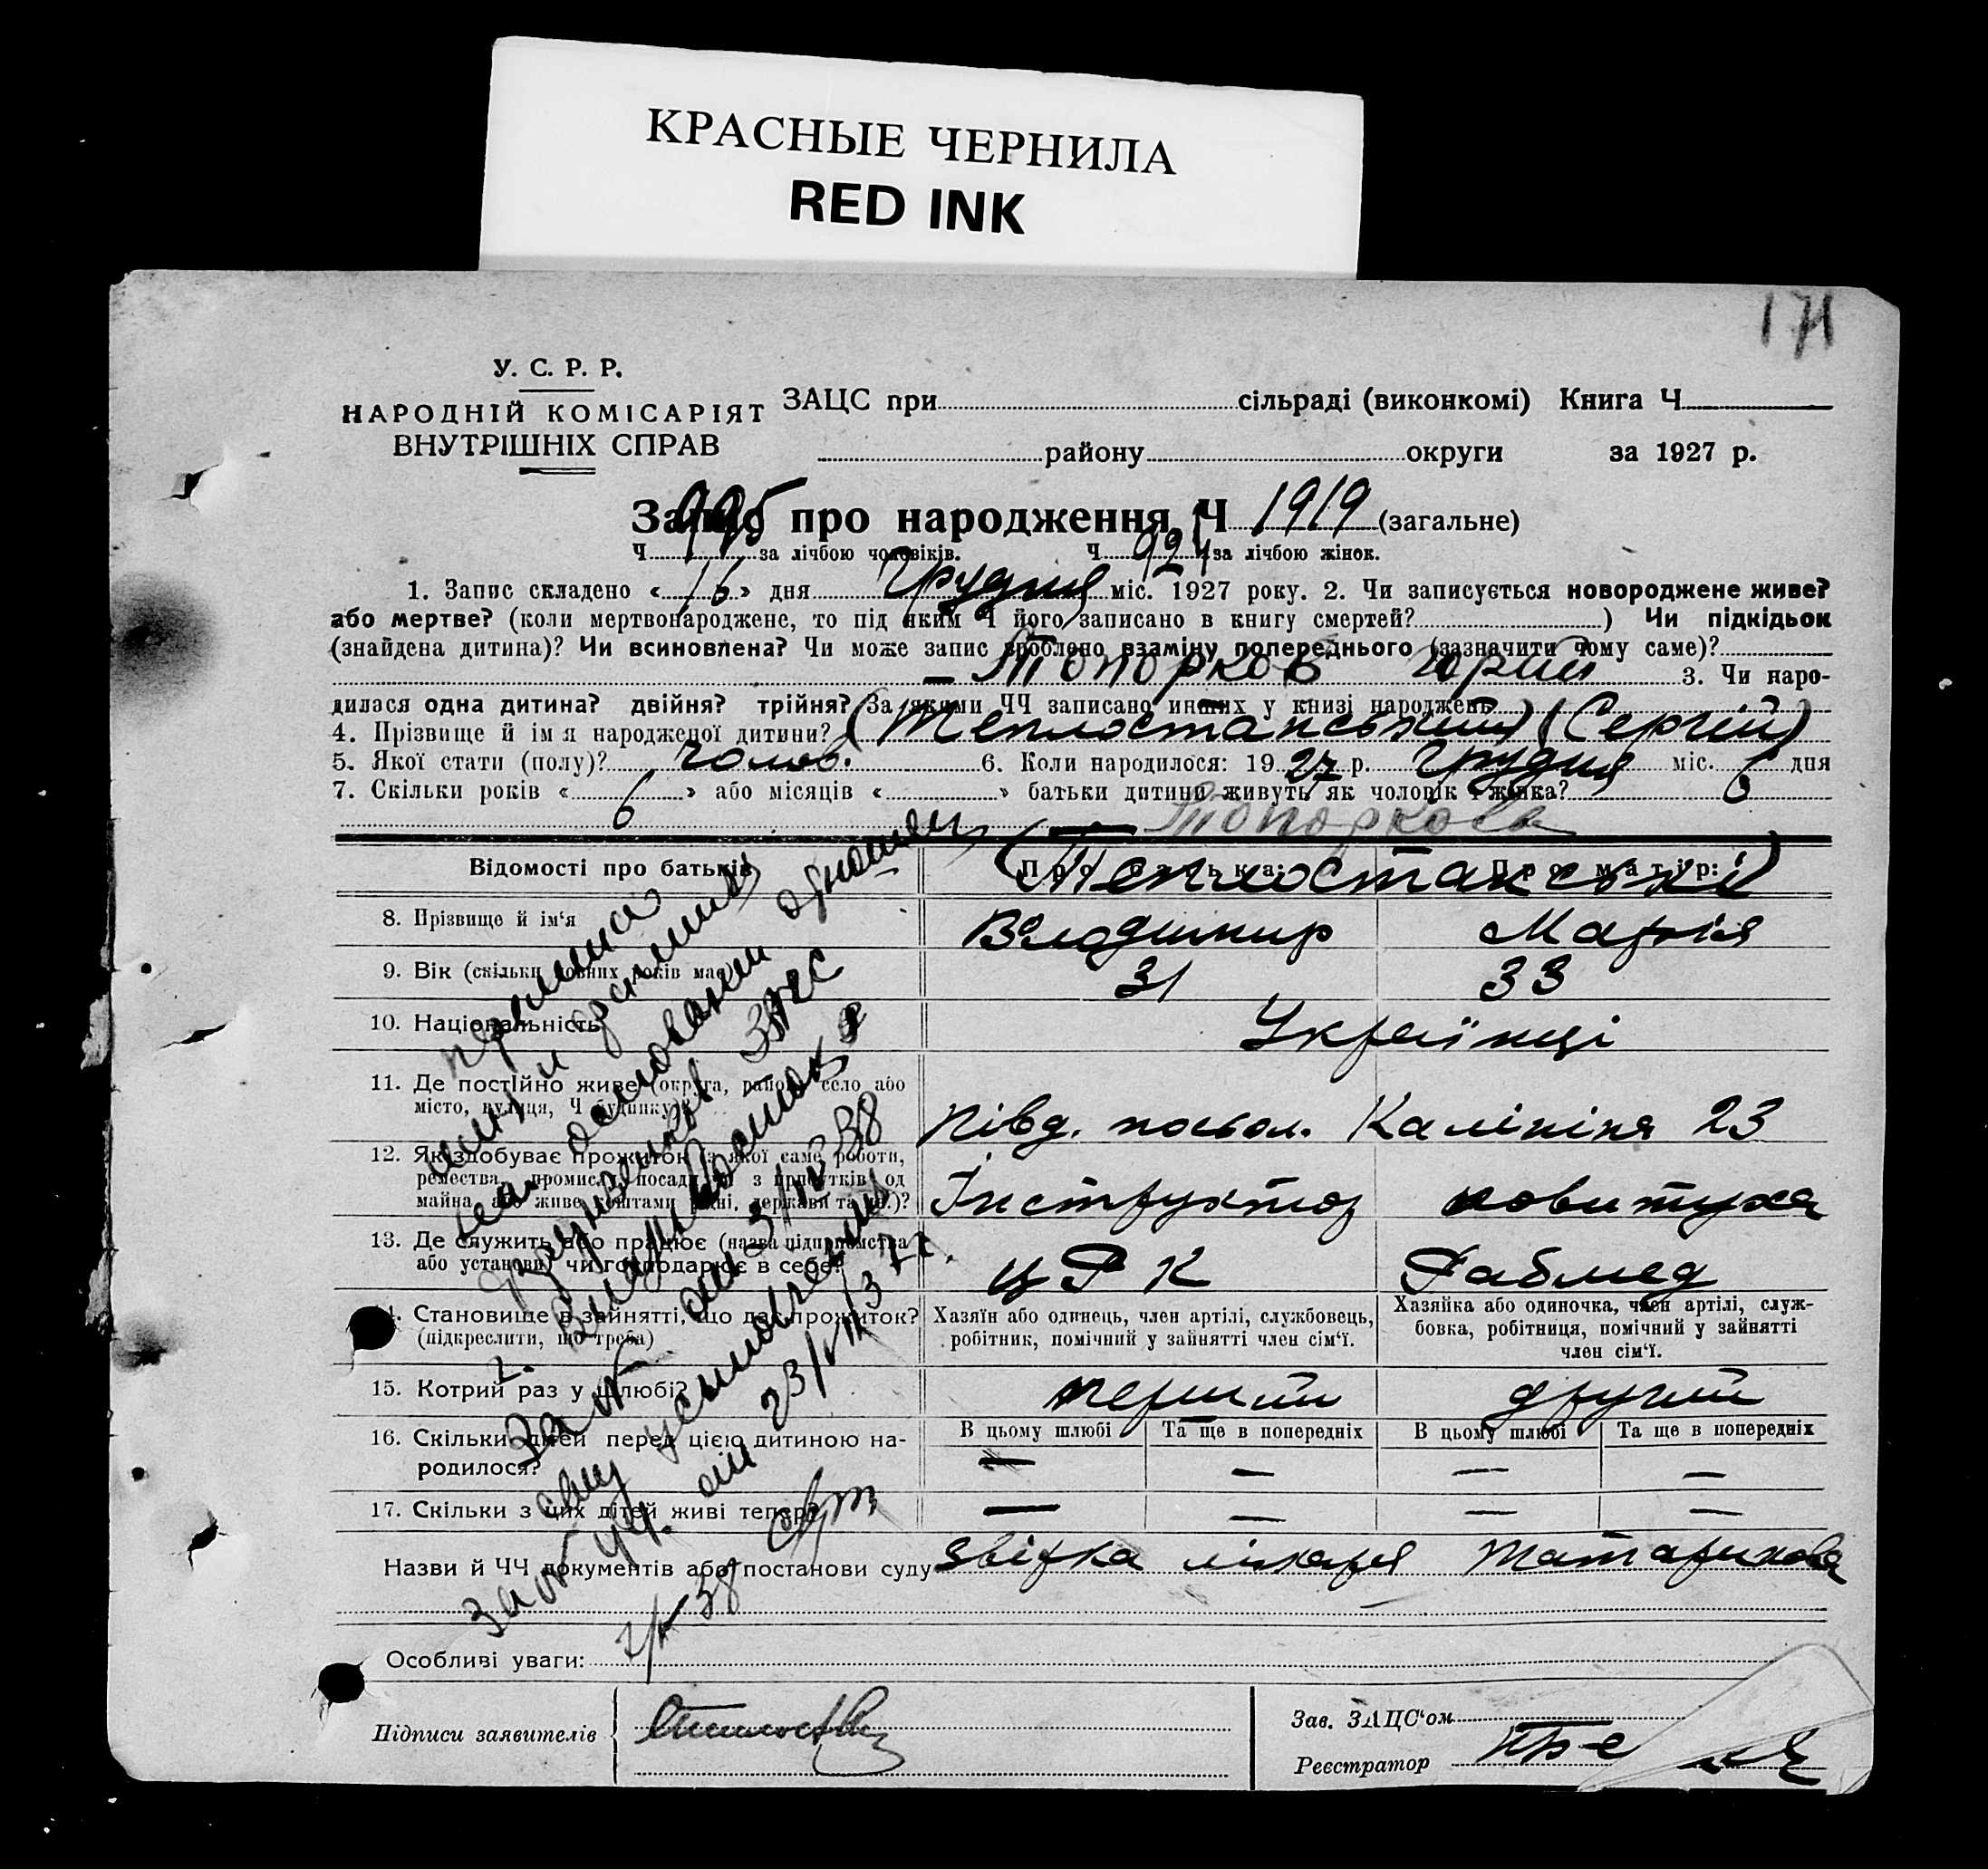 КРАСНЫЕ ЧЕРНИЛА
RED INK
171
У. С. Р. Р.
НАРОДНІЙ КОМІСАРІЯТ
ВНУТРІШНІХ СПРАВ
ЗАЦС при сільраді (виконкомі) Книга Ч
району округи за 1927 р.
Запис про народження Ч 1919 (загальне)
Ч 995 за лічбою чоловіків. Ч 924 за лічбою жінок.
1. Запис складено « 16 » дня Грудня міс. 1927 року. 2. Чи записується новороджене живе?
або мертве? (коли мертвонароджене, то під яким Ч його записано в книгу смертей? ) Чи підкідьок
(знайдена дитина)? Чи всиновлена? Чи може запис зроблено взаміну попереднього (зазначити чому саме)?
Топорков Юрий 3. Чи наро-
дилася одна дитина? двійня? трійня? За якими ЧЧ записано инших у книзі народжень
4. Прізвище й ім'я народженої дитини? (Теплостанський) (Сергій)
5. Якої стати (полу)? чолов. 6. Коли народилося: 19 27 р. Грудня міс. 6 дня
7. Скільки років « 6 » або місяців « » батьки дитини живуть як чоловік і жінка? 6
Топоркова
Відомості про батьків Про батька: Про матір:
(Теплостанські)
8. Прізвище й ім'я Володимир Марія
9. Вік (скільки повних років має) 31 33
10. Національність Українці
11. Де постійно живе (округа, район, село або
місто, вулиця, Ч будинку)? Півд. посьол. Калініна 23
12. Як здобуває прожиток (з якої саме роботи,
ремества, промислу, посади, чи з прибутків од
майна, або живе коштами рідні, держави та ін.)? Інструктор повитуха
13. Де служить або працює (назва підприємства
або установи) чи господарює в себе? ЦРК Рабмед
14. Становище в зайнятті, що дає прожиток?
(підкреслити, що треба)
Хазяїн або одинець, член артілі, службовець,
робітник, помічний у зайнятті член сім'ї.
Хазяйка або одиночка, член артілі, служ-
бовка, робітниця, помічний у зайнятті
член сім'ї.
15. Котрий раз у шлюбі? перший другий
16. Скільки дітей перед цією дитиною на-
родилося?
В цьому шлюбі Та ще в попередніх В цьому шлюбі Та ще в попередніх
— — — —
17. Скільки з цих дітей живі тепер? — — — —
Назви й ЧЧ документів або постанови суду Звірка лікаря
Особливі уваги:
Підписи заявителів
Зав. ЗАЦС'ом
Реєстратор
на основании
ЗАГС
2. Владивосток
от 3/IV 38
усыновлении
от 23/VII 37 г.